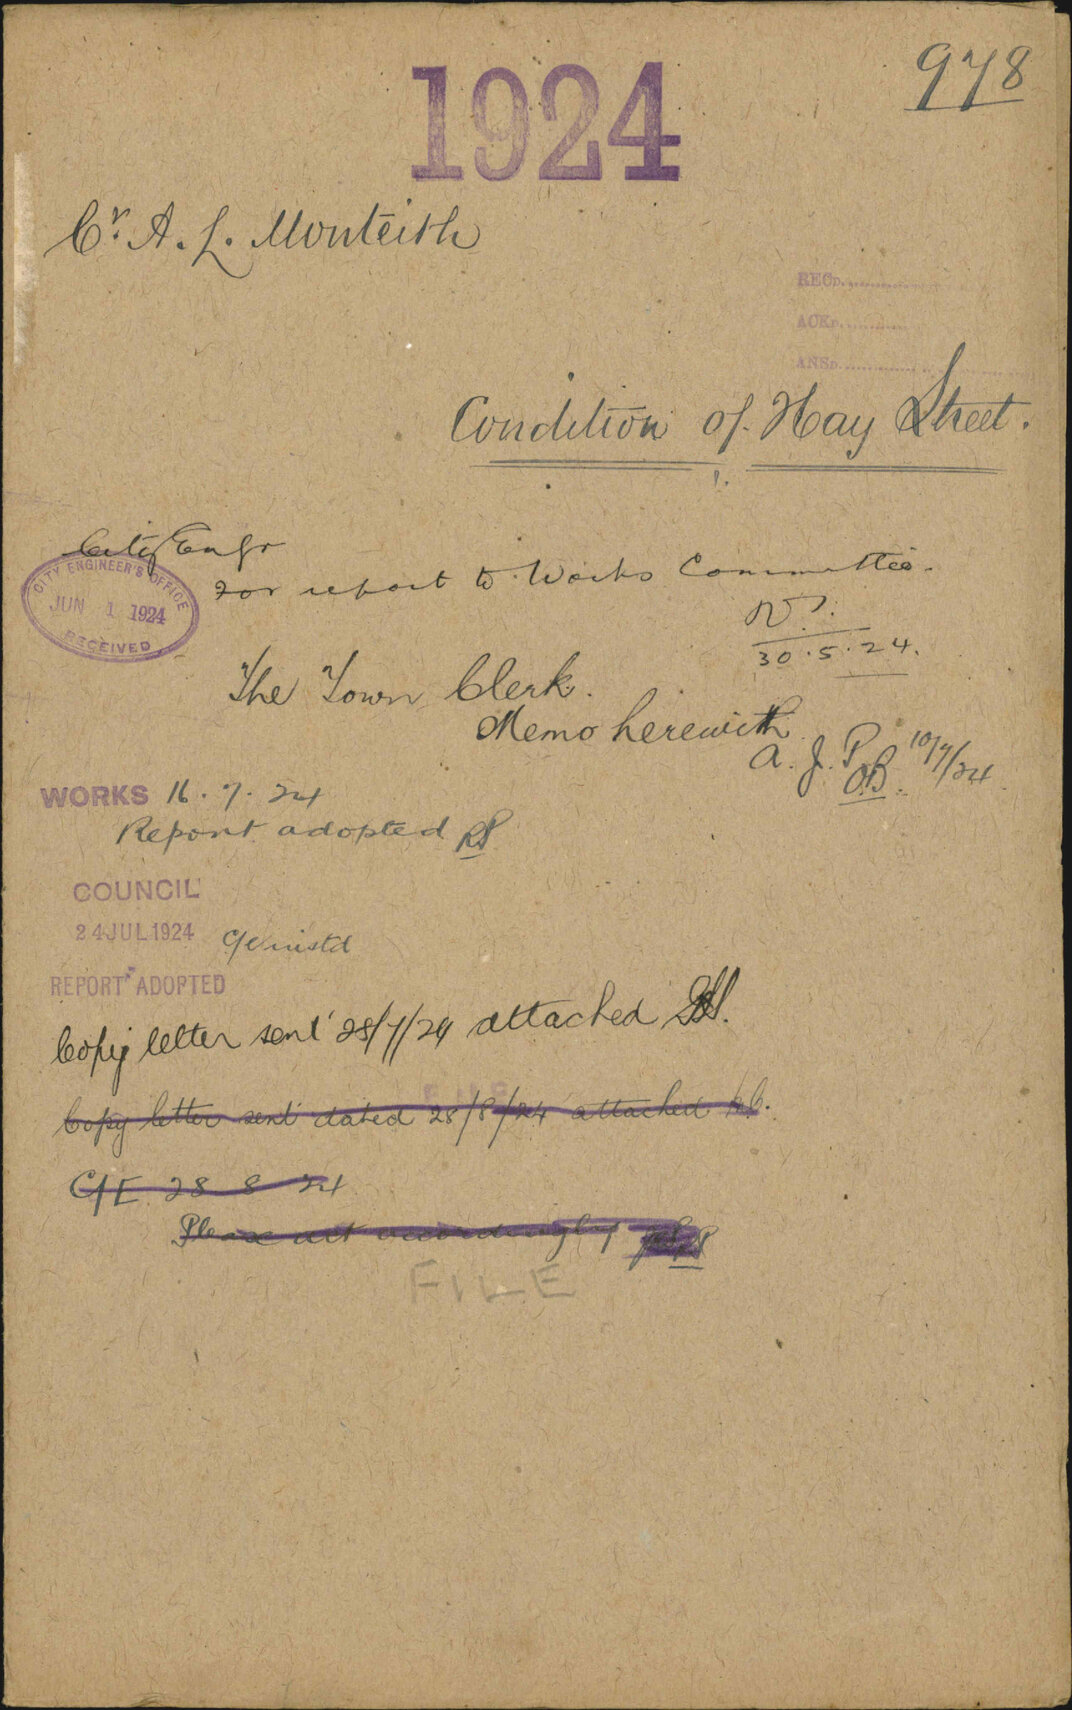 978
1924
Cr. A. L. Monteith
RECD.
ACKD.
ANSD.
Condition of Hay Street.
City Engr
For report to Works Committee.
CITY ENGINEER'S OFFICE
JUN 1 1924
RECEIVED
30.5.24.
The Town Clerk.
Memo herewith
A. J. P. 10/7/24
O.B.
WORKS 16.7.24
Report adopted
COUNCIL
24 JUL 1924
REPORT ADOPTED
Copy letter sent 28/7/24 attached
Copy letter sent dated 28/8/24 attached
C/E 28 8 24
Please act accordingly
FILE